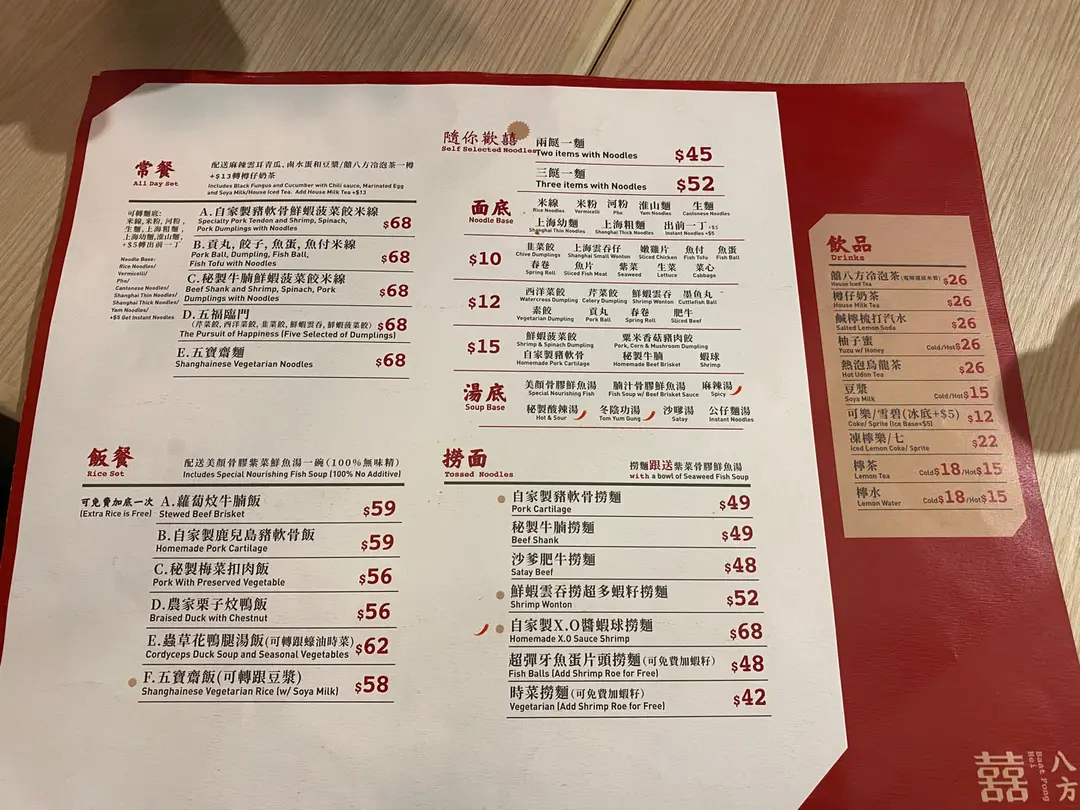 常餐
All Day Set
配送麻辣雲耳青瓜、鹵水蛋和豆漿/囍八方冷泡茶一樽
+$13轉樽仔奶茶
Includes Black Fungus and Cucumber with Chili sauce, Marinated Egg
and Soya Milk/House Iced Tea. Add House Milk Tea +$13
可轉麵底:
米線,米粉,河粉,
生麵,上海粗麵,
上海幼麵,淮山麵,
+$5轉出前一丁
Noodle Base:
Rice Noodles/
Vermicelli/
Pho/
Cantonese Noodles/
Shanghai Thin Noodles/
Shanghai Thick Noodles/
Yam Noodles/
+$5 Get Instant Noodles
A.自家製豬軟骨鮮蝦菠菜餃米線
Specialty Pork Tendon and Shrimp, Spinach,
Pork Dumplings with Noodles
$68
B.貢丸,餃子,魚蛋,魚付米線
Pork Ball, Dumpling, Fish Ball,
Fish Tofu with Noodles
$68
C.秘製牛腩鮮蝦菠菜餃米線
Beef Shank and Shrimp, Spinach, Pork
Dumplings with Noodles
$68
D.五福臨門
(芹菜餃,西洋菜餃,韭菜餃,鮮蝦雲吞,鮮蝦菠菜餃)
The Pursuit of Happiness (Five Selected of Dumplings)
$68
E.五寶齋麵
Shanghainese Vegetarian Noodles
$68
隨你歡囍
Self Selected Noodles
兩餸一麵
Two items with Noodles
$45
三餸一麵
Three items with Noodles
$52
面底
Noodle Base
米線 米粉 河粉 淮山麵 生麵
Rice Noodles Vermicelli Pho Yam Noodles Cantonese Noodles
上海幼麵 上海粗麵 出前一丁+$5
Shanghai Thin Noodles Shanghai Thick Noodles Instant Noodles +$5
$10
韭菜餃 上海雲吞仔 嫩雞片 魚付 魚蛋
Chive Dumplings Shanghai Small Wonton Sliced Chicken Fish Tofu Fish Ball
春卷 魚片 紫菜 生菜 菜心
Spring Roll Sliced Fish Meat Seaweed Lettuce Cabbage
$12
西洋菜餃 芹菜餃 鮮蝦雲吞 墨魚丸
Watercress Dumpling Celery Dumpling Shrimp Wonton Cuttlefish Ball
素餃 貢丸 春卷 肥牛
Vegetarian Dumpling Pork Ball Spring Roll Sliced Beef
$15
鮮蝦菠菜餃 粟米香菇豬肉餃
Shrimp & Spinach Dumpling Pork, Corn & Mushroom Dumpling
自家製豬軟骨 秘製牛腩 蝦球
Homemade Pork Cartilage Homemade Beef Brisket Shrimp
湯底
Soup Base
美顏骨膠鮮魚湯 腩汁骨膠鮮魚湯 麻辣湯
Special Nourishing Fish Fish Soup w/ Beef Brisket Sauce Spicy
秘製酸辣湯 冬陰功湯 沙嗲湯 公仔麵湯
Hot & Sour Tom Yum Gung Satay Instant Noodles
飯餐
Rice Set
配送美顏骨膠紫菜鮮魚湯一碗(100%無味精)
Includes Special Nourishing Fish Soup (100% No Additive)
可免費加底一次
(Extra Rice is Free)
A.蘿蔔炆牛腩飯
Stewed Beef Brisket
$59
B.自家製鹿兒島豬軟骨飯
Homemade Pork Cartilage
$59
C.秘製梅菜扣肉飯
Pork With Preserved Vegetable
$56
D.農家栗子炆鴨飯
Braised Duck with Chestnut
$56
E.蟲草花鴨腿湯飯(可轉跟蠔油時菜)
Cordyceps Duck Soup and Seasonal Vegetables
$62
F.五寶齋飯(可轉跟豆漿)
Shanghainese Vegetarian Rice (w/ Soya Milk)
$58
撈面
Tossed Noodles
撈麵跟送紫菜骨膠鮮魚湯
with a bowl of Seaweed Fish Soup
自家製豬軟骨撈麵
Pork Cartilage
$49
秘製牛腩撈麵
Beef Shank
$49
沙爹肥牛撈麵
Satay Beef
$48
鮮蝦雲吞撈超多蝦籽撈麵
Shrimp Wonton
$52
自家製X.O醬蝦球撈麵
Homemade X.O Sauce Shrimp
$68
超彈牙魚蛋片頭撈麵(可免費加蝦籽)
Fish Balls (Add Shrimp Roe for Free)
$48
時菜撈麵(可免費加蝦籽)
Vegetarian (Add Shrimp Roe for Free)
$42
飲品
Drinks
囍八方冷泡茶
House Iced Tea
$26
樽仔奶茶
House Milk Tea
$26
鹹檸梳打汽水
Salted Lemon Soda
$26
柚子蜜
Yuzu w/ Honey
Cold/Hot$26
熱泡烏龍茶
Hot Udon Tea
$26
豆漿
Soya Milk
Cold/Hot$15
可樂/雪碧(冰底+$5)
Coke/ Sprite (Ice Base+$5)
$12
凍檸樂/七
Iced Lemon Coke/ Sprite
$22
檸茶
Lemon Tea
Cold$18/Hot$15
檸水
Lemon Water
Cold$18/Hot$15
囍
Baat Fong
Hei
八方